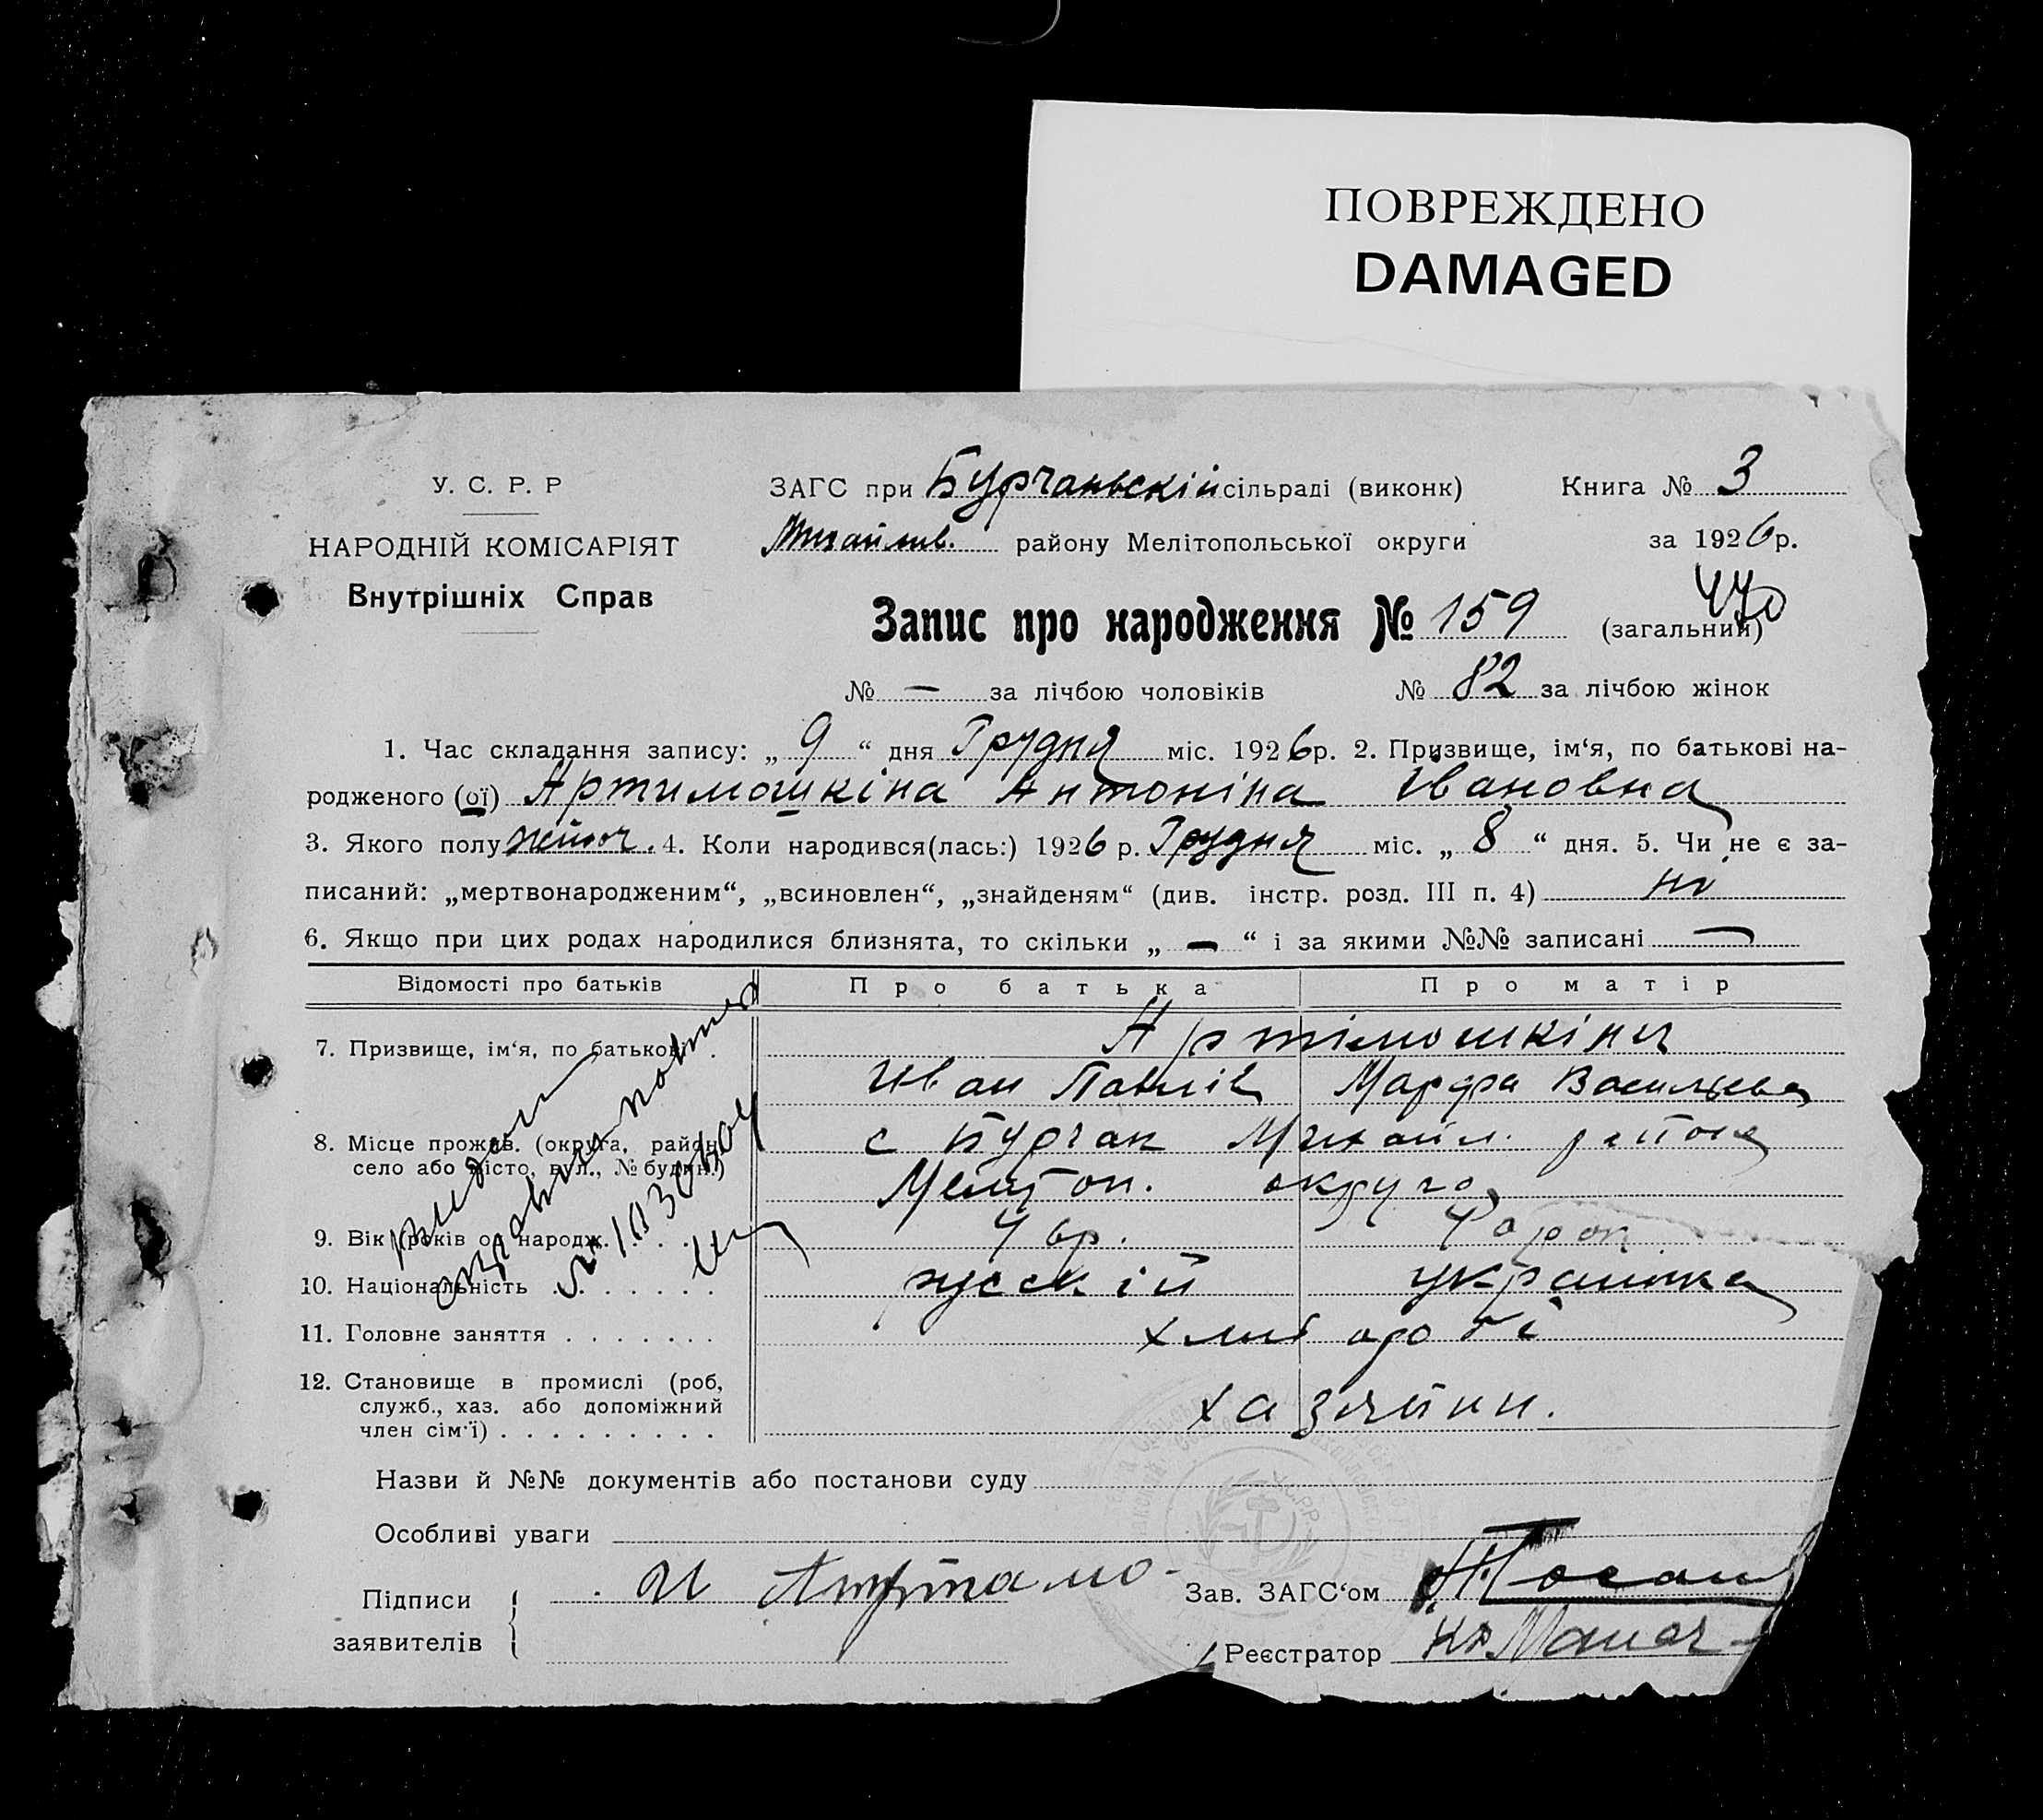 ПОВРЕЖДЕНО
DAMAGED
У. С. Р. Р
НАРОДНІЙ КОМІСАРІЯТ
Внутрішніх Справ
ЗАГС при Бурчаньскій сільраді (виконк) Книга № 3
Михайлів. району Мелітопольської округи за 1926 р.
Запис про народження № 159 (загальний)
№ — за лічбою чоловіків № 82 за лічбою жінок
1. Час складання запису: „ 9 “ дня Грудня міс. 1926 р. 2. Призвище, ім‘я, по батькові на-
родженого (ої) Артимошкіна Антоніна Івановна
3. Якого полу жіноч. 4. Коли народився(лась:) 1926 р. Грудня міс. „ 8 “ дня. 5. Чи не є за-
писаний: „мертвонародженим“, „всиновлен“, „знайденям“ (див. інстр. розд. III п. 4) ні
6. Якщо при цих родах народилися близнята, то скільки „ — “ і за якими №№ записані —
Відомості про батьків Про батька Про матір
7. Призвище, ім‘я, по батькові . Артімошкіни
Иван Павлів Марфа Васильева
8. Місце прожив. (округа, район, с Бурчак Михайл. района
село або місто, вул., № будин.) Мелітоп. округа
9. Вік (років од народж.
10. Національність . . . . . . . русскій украинка
11. Головне заняття . . . . . . . хлиб
12. Становище в промислі (роб,
служб., хаз. або допоміжний хазяини.
член сім‘ї) . . . . . . . . .
Назви й №№ документів або постанови суду
Особливі уваги
Підписи И
заявителів
Зав. ЗАГС‘ом
Реєстратор